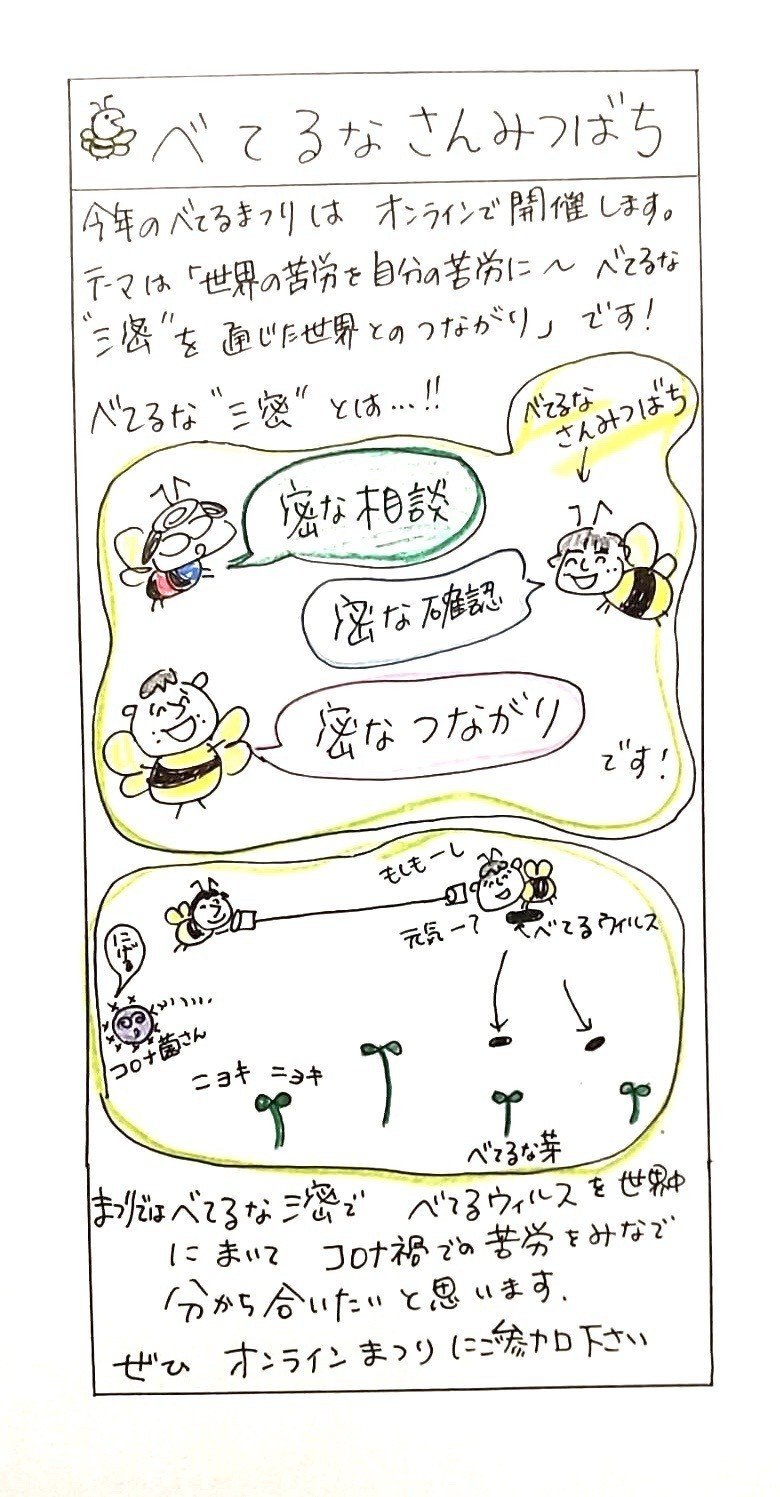 べてるなさんみつばち
今年のべてるまつりは オンラインで開催します。
テーマは「世界の苦労を自分の苦労に〜 べてるな
"三密"を 通じた世界とのつながり」です!
べてるな"三密"とは…!!
べてるな
さんみつばち
密な相談
密な確認
密なつながり
です!
もしもーし
元気ー?
べてるウィルス
にげろ
コロナ菌さん
ニョキ ニョキ
べてるな芽
まつりではべてるな三密で べてるウィルスを世界中
にまいて コロナ禍での苦労をみなで
分から合いたいと思います.
ぜひ オンラインまつりにご参加下さい